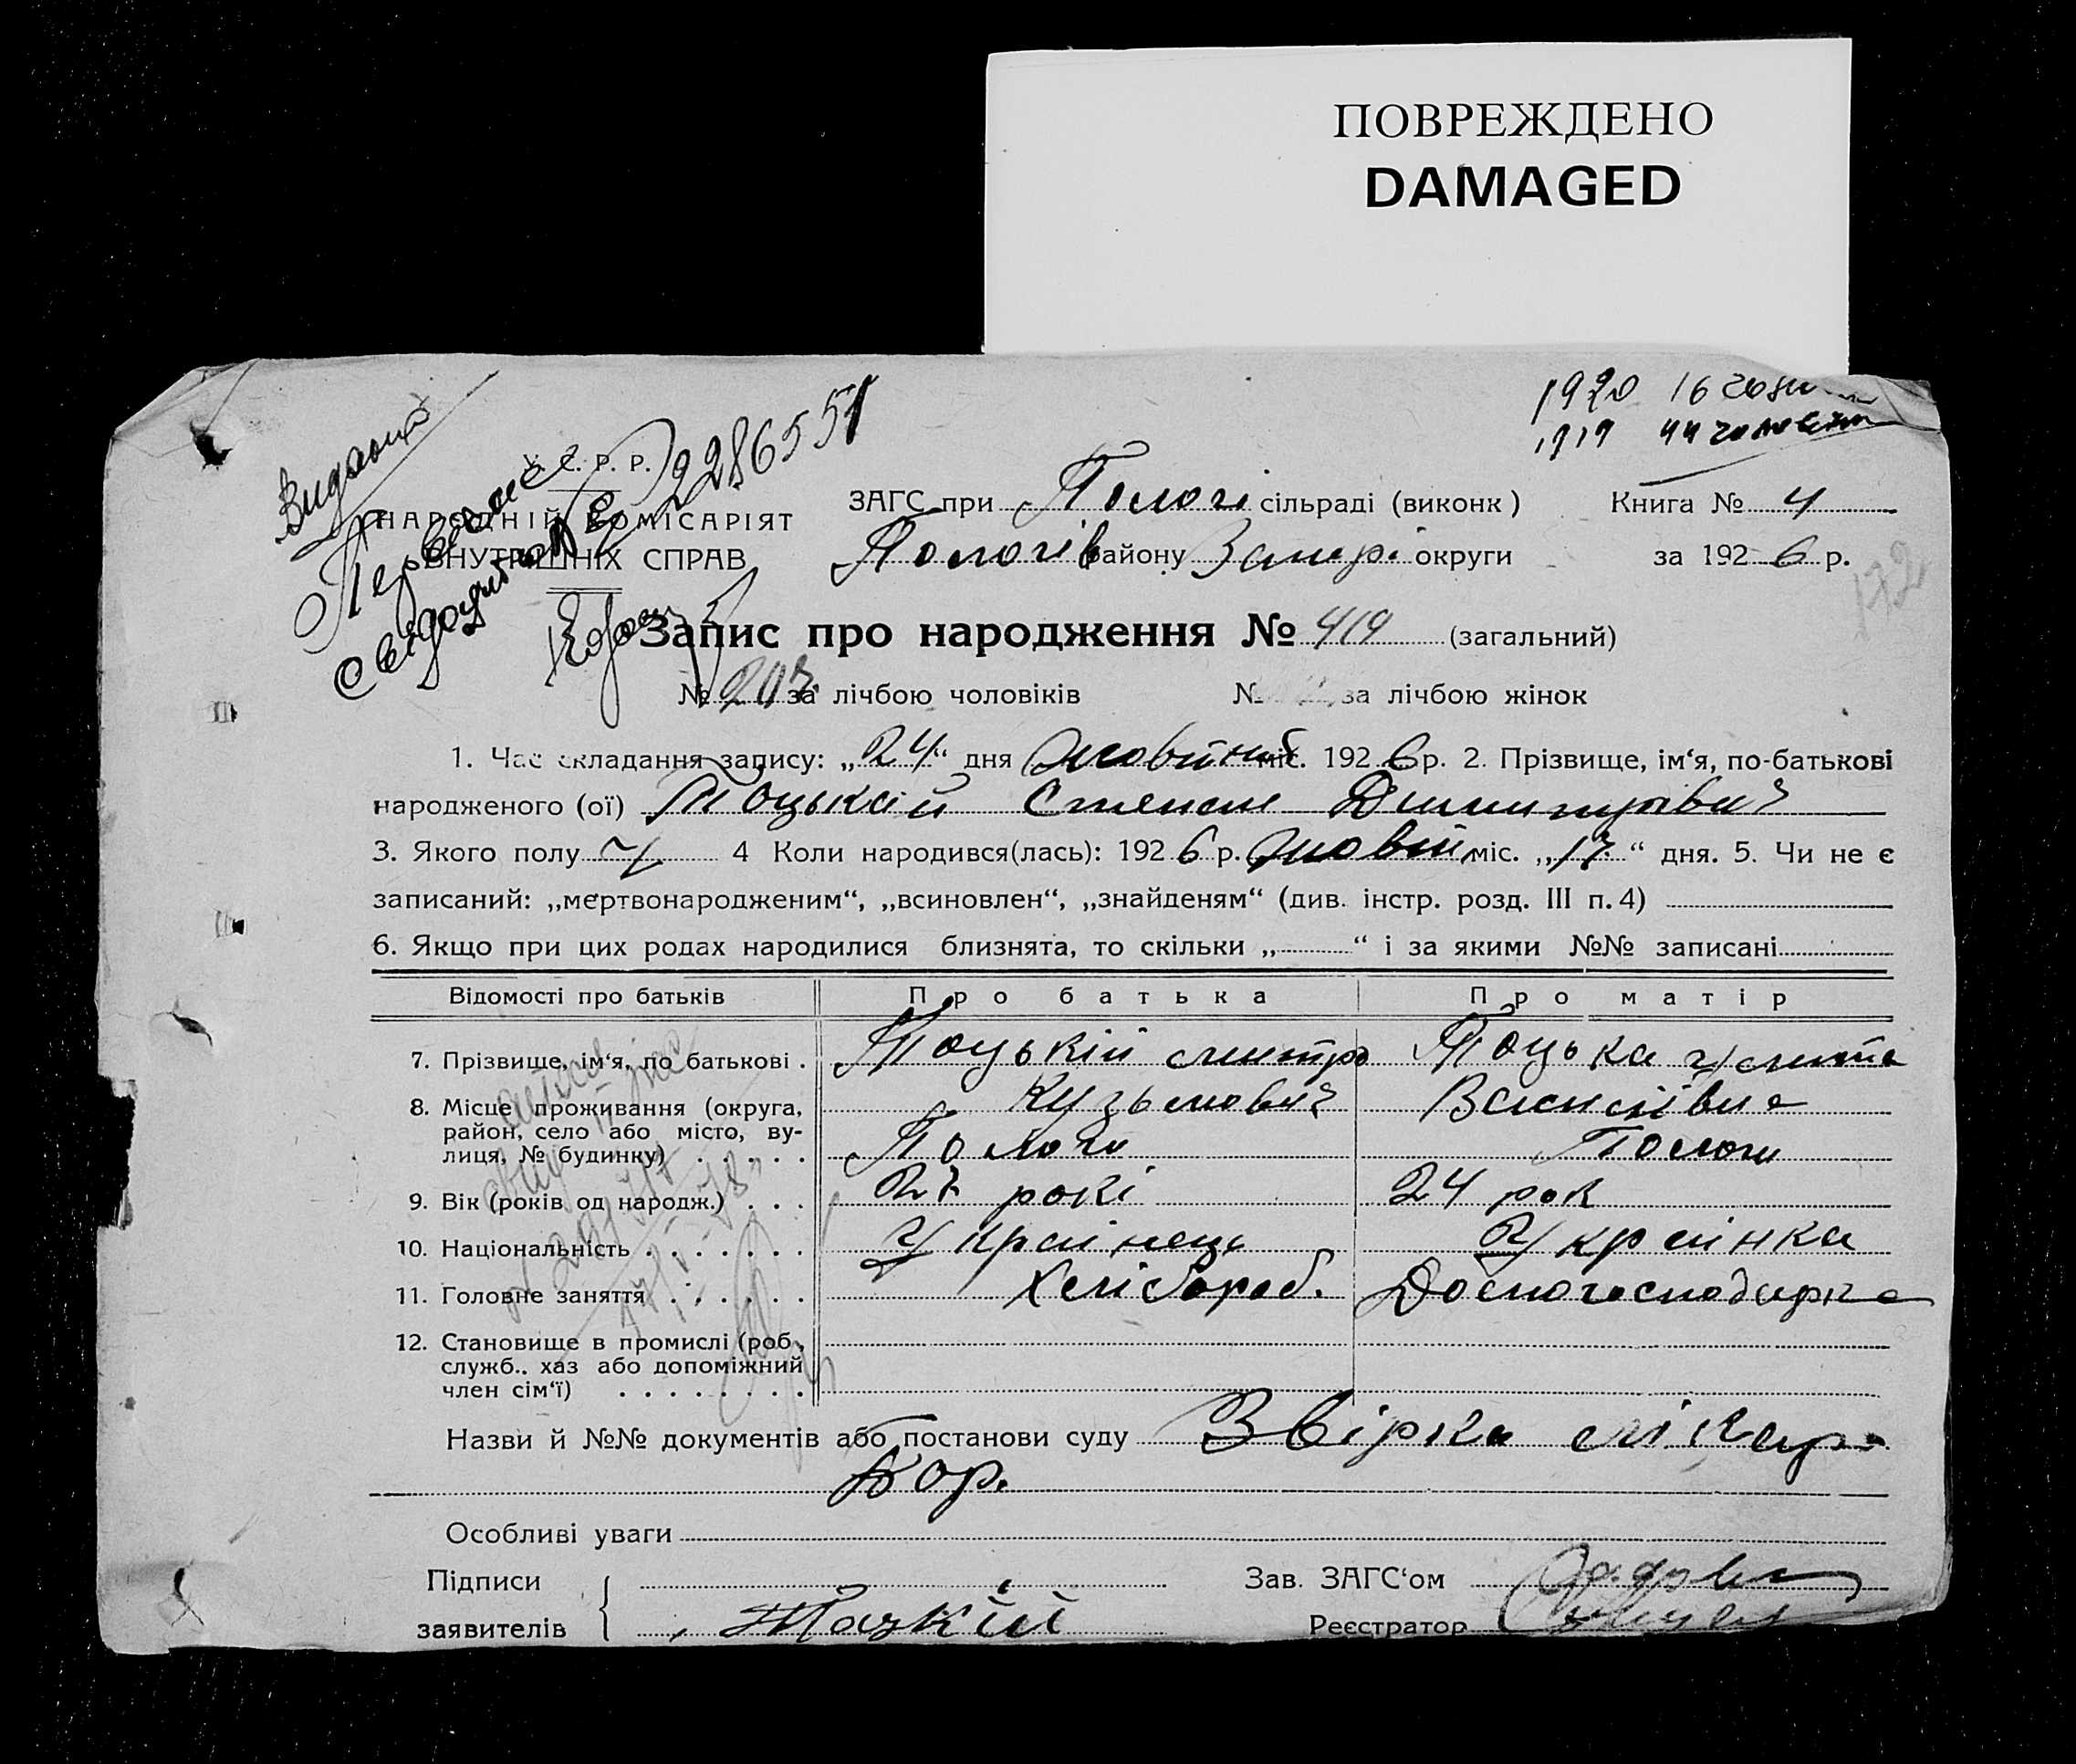 ПОВРЕЖДЕНО
DAMAGED
1920 16
1919 44 чоловіки
Видано
Первоне
свидоцтво № 2286551
У. С. Р. Р.
НАРОДНІЙ КОМІСАРІЯТ
ВНУТРІШНІХ СПРАВ
ЗАГС при Пологі сільраді (виконк) Книга № 4
Пологів району Запорі округи за 1926 р.
172
Запис про народження № 419 (загальний)
№ 207 за лічбою чоловіків № за лічбою жінок
1. Час складання запису: „24“ дня жовтня міс. 1926 р. 2. Прізвище, ім‘я, по-батькові
народженого (ої) Тоцькій Степан Димитрівич
3. Якого полу ч 4 Коли народився(лась): 1926 р. жовтн міс. „17“ дня. 5. Чи не є
записаний: „мертвонародженим“, „всиновлен“, „знайденям“ (див. інстр. розд. III п. 4)
6. Якщо при цих родах народилися близнята, то скільки „ “ і за якими №№ записані
Відомості про батьків Про батька Про матір
7. Прізвище, ім‘я, по батькові . Тоцькій Дмитро Тоцька Улита
Кузьмович Василівна
8. Місце проживання (округа,
район, село або місто, ву-
лиця, № будинку) . . . . . Пологи Пологи
9. Вік (років од народж.) . . . 27 рокі 24 рок
10. Національність . . . . . . . Українець Українка
11. Головне заняття . . . . . . Хлібороб. Домогосподарка
12. Становище в промислі (роб.,
служб., хаз або допоміжний
член сім‘ї) . . . . . . . .
Назви й №№ документів або постанови суду Звірка лікар
Кор.
Особливі уваги
Підписи Зав. ЗАГС‘ом
заявителів Реєстратор